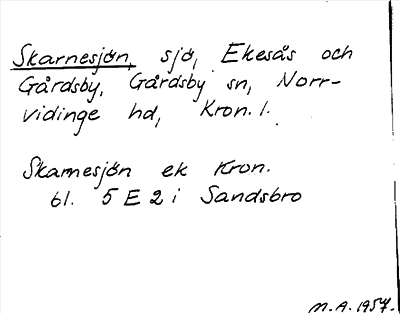 Skarnesjön, sjö, Ekesås och
Gårdsby, Gårdsby sn, Norr-
vidinge hd, Kron. l.
Skarnesjön ek Kron.
bl. 5 E 2 i Sandsbro
M.A. 1957.